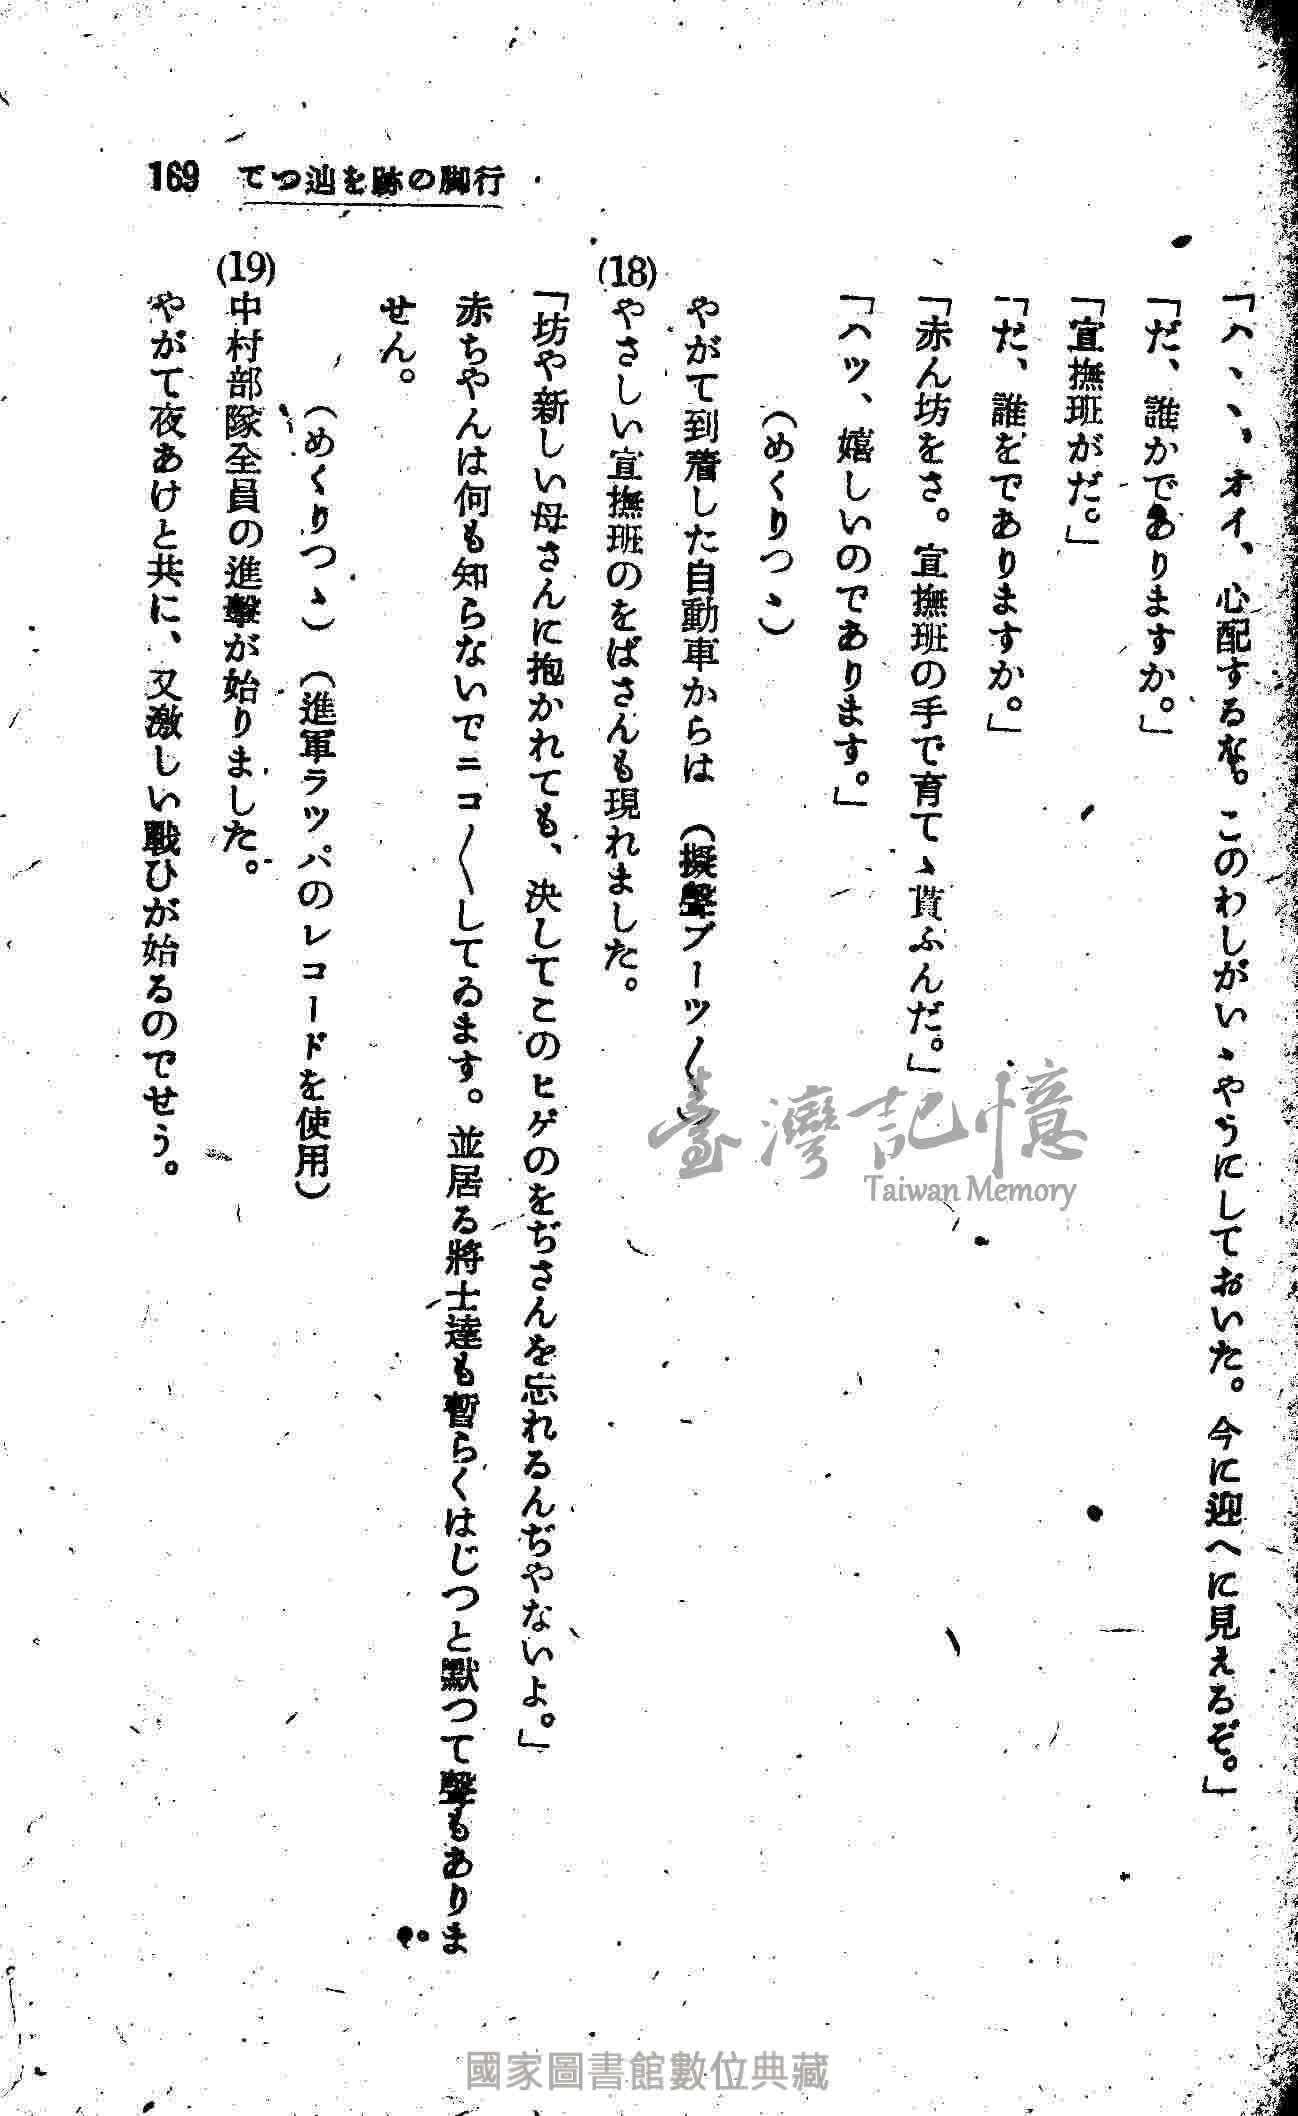 169 てつ辿を跡の脚行
「ハヽヽ、オイ、心配するな。このわしがいゝやうにしておいた。今に迎へに見えるぞ。」
「だ、誰かでありますか。」
「宣撫班がだ。」
「だ、誰をでありますか。」
「赤ん坊をさ。宣撫班の手で育てゝ貰ふんだ。」
「ハツ、嬉しいのであります。」
(めくりつゝ)
やがて到着した自動車からは (擬聲ブーツ〱)
(18)やさしい宣撫班のをばさんも現れました。
「坊や新しい母さんに抱かれても、決してこのヒゲのをぢさんを忘れるんぢやないよ。」
赤ちやんは何も知らないでニコ〱してゐます。並居る將士達も暫らくはじつと默つて聲もありま
せん。
(めくりつゝ) (進軍ラツパのレコードを使用)
(19)中村部隊全員の進擊が始りました。
やがて夜あけと共に、又激しい戰ひが始るのでせう。
臺灣記憶
Taiwan Memory
國家圖書館數位典藏